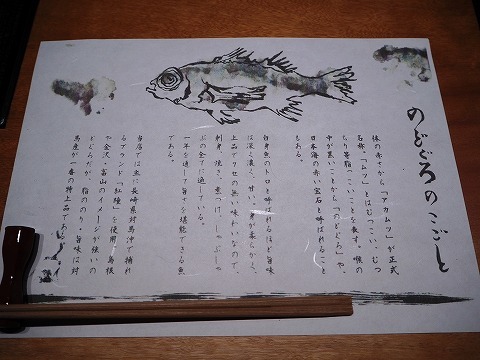 のどぐろのこごと
体の赤さから「アカムツ」が正式
名称。「ムツ」とはむつこい、むつ
っり等脂っこいことを表す。喉の
中が黒いことから「のどぐろ」や、
日本海の赤い宝石と呼ばれること
もある。
白身魚のトロと呼ばれるほど旨味
は深く濃く、甘い。身が柔らかく、
上品でクセの無い味わいなので、
刺身、焼き、煮つけ、しゃぶしゃ
ぶの全てに適している。
一年を通して旨さを堪能できる魚
である。
当店では主に長崎県対馬沖で捕れ
るブランド「紅瞳」を使用。島根
や金沢・富山のイメージが強いの
どぐろだが、脂ののり・旨味は対
馬産が一番の特上品である。